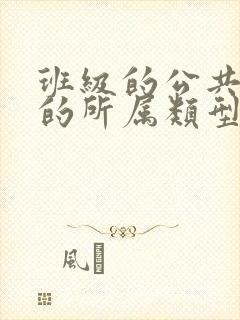 班級的公共
的所属類型
風